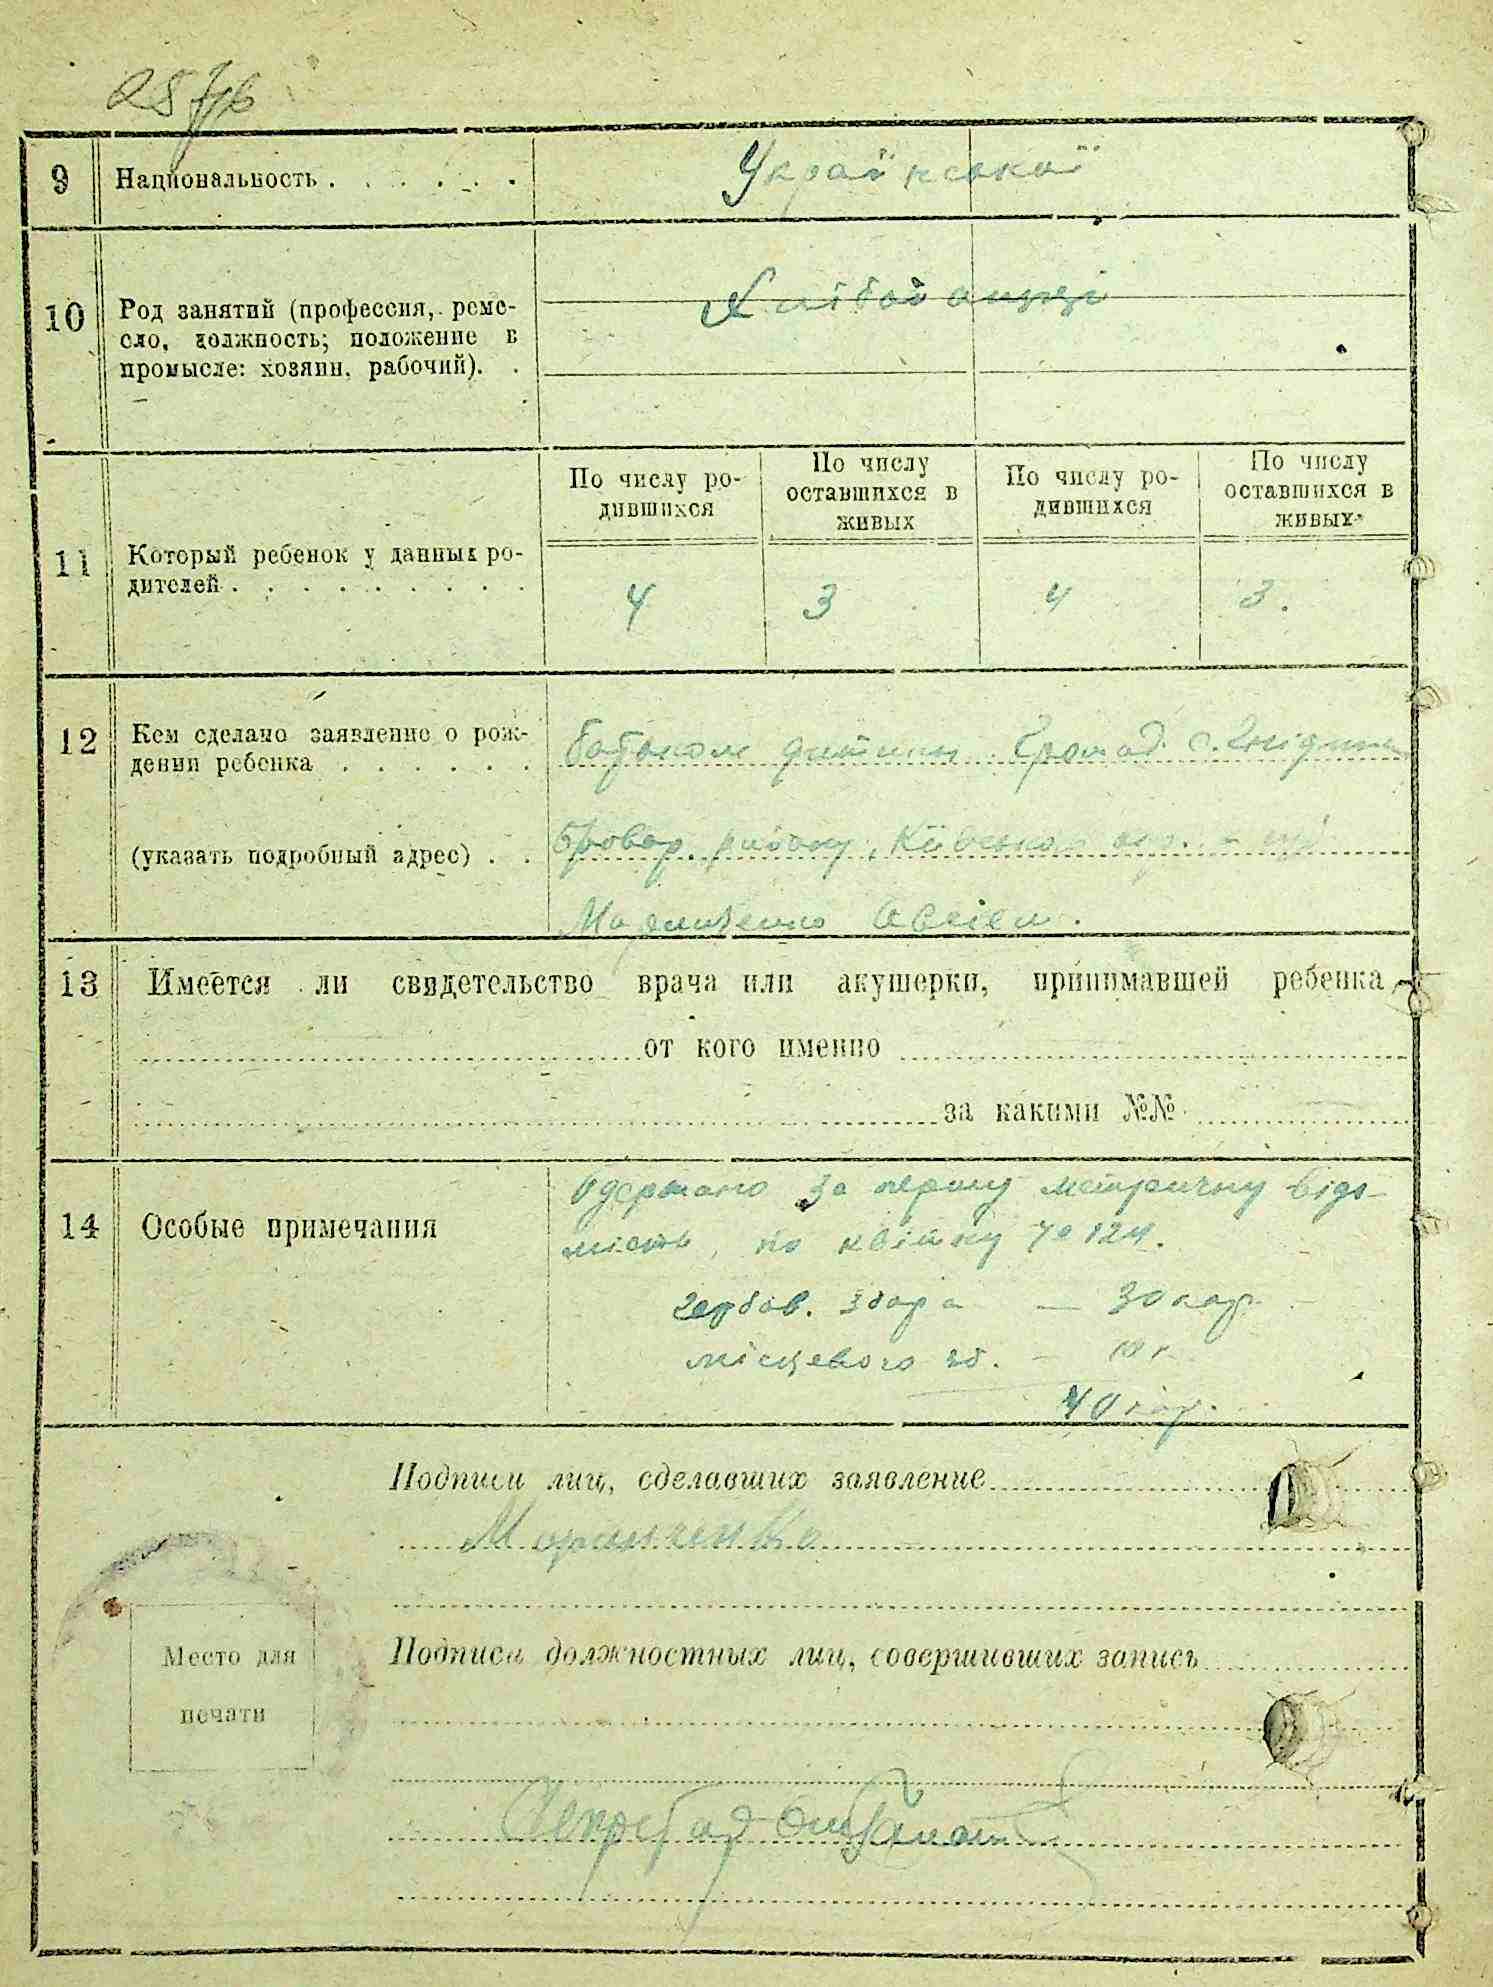 9 Национальность . . . . . .
Української
10 Род занятий (профессия, реме-
сло, должность; положение в
промысле: хозяин, рабочий). .
Хлібопашці
11 Который ребенок у данных ро-
дителей . . . . . . . . .
По числу ро-
дившихся
По числу
оставшихся в
живых
По числу ро-
дившихся
По числу
оставшихся в
живых
4 3 4 3.
12 Кем сделано заявление о рож-
дении ребенка . . . . . .
(указать подробный адрес) . .
батьком дитини Громад. с. Гнідин
Бровар. району, Київської окр.
Авсієм.
13 Имеется ли свидетельство врача или акушерки, принимавшей ребенка
от кого именно
за какими №№
14 Особые примечания
Одержано за першу метричну відо-
мість, по квітку № 124.
Гербов. збора — 30 кор.
місцевого зб. — 10 к.
40 кор.
Подписи лиц, сделавших заявление
Подписи должностных лиц, совершивших запись
Место для
печати
Секретар